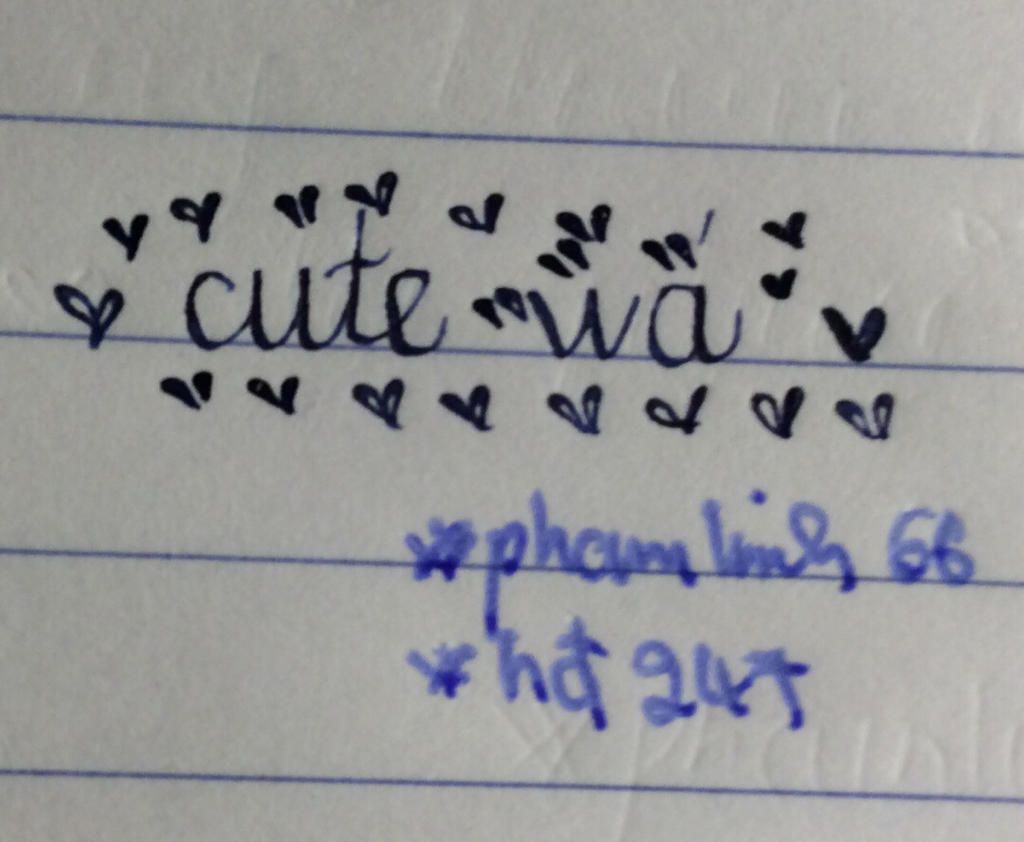 cute wá
* phamlinh 66
* hđ 247